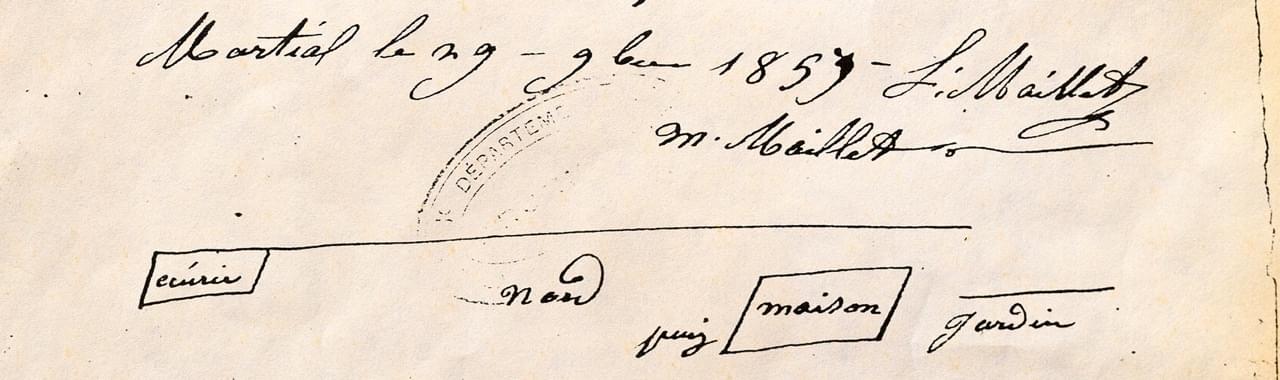 Martial le 29 - 9bre 1857 - L. Maillet
m. Maillet
DÉPARTEME
ecúrie
nord
maison
puiz
Jardin